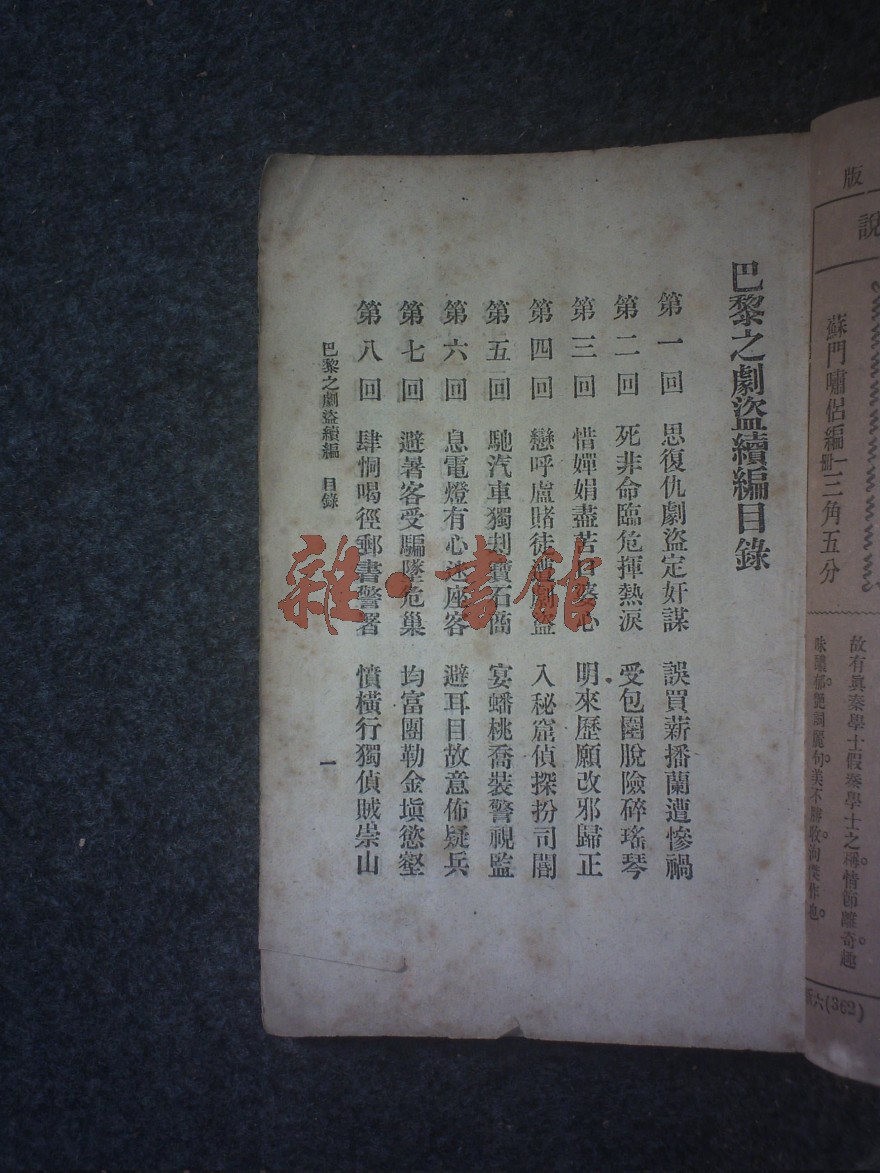 巴黎之劇盜續編目錄
第一回 思復仇劇盜定奸謀 誤買薪播蘭遭慘禍
第二回 死非命臨危揮熱淚 受包圍脫險碎瑤琴
第三回 惜嬋娟盡苦口婆心 明來歷願改邪歸正
第四回 戀呼盧賭徒遭 盜 入秘窟偵探扮司閽
第五回 馳汽車獨刦寶石商 宴蟠桃喬裝警視監
第六回 息電燈有心迷座客 避耳目故意佈疑兵
第七回 避暑客受騙墜危巢 均富團勒金塡慾壑
第八回 肆恫喝徑郵書警署 憤橫行獨偵賊崇山
巴黎之劇盜續編 目錄
一
版
說
蘇門嘯侶編 一册 三角五分
故有眞秦學士假秦學士之稱。情節離奇。趣
味醲郁。艷詞麗句。美不勝收。洵傑作也。
六(362)
雜·書館